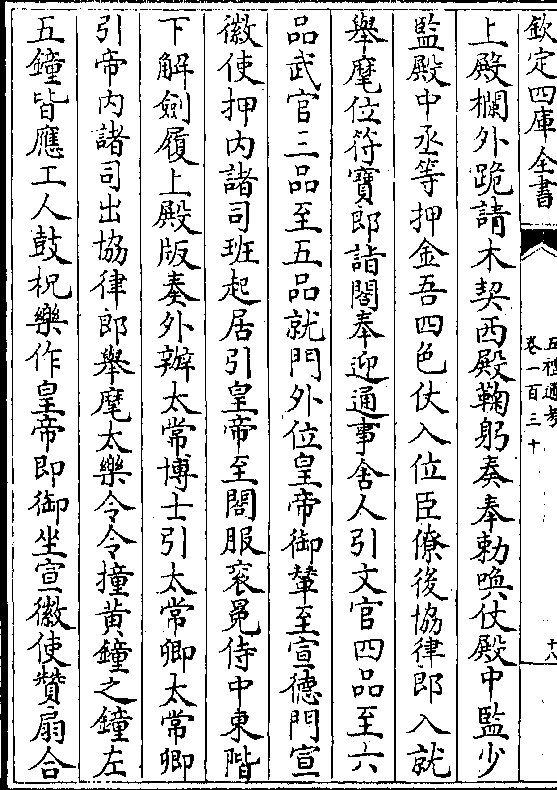 欽定四庫全書
五禮通考
卷一百三十
十八
上殿欄外跪請木契西殿鞠躬奏奉勅喚仗殿中監少
監殿中丞等押金吾四色仗入位臣僚後協律郎入就
舉麾位符寶郎詣閤奉迎通事舍人引文官四品至六
品武官三品至五品就門外位皇帝御輦至宣德門宣
徽使押内諸司班起居引皇帝至閤服衮冕侍中東階
下解劍履上殿版奏外辦太常博士引太常卿太常卿
引帝内諸司出協律郎舉麾太樂令令撞黄鐘之鐘左
五鐘皆應工人鼓柷樂作皇帝即御坐宣徽使賛扇合